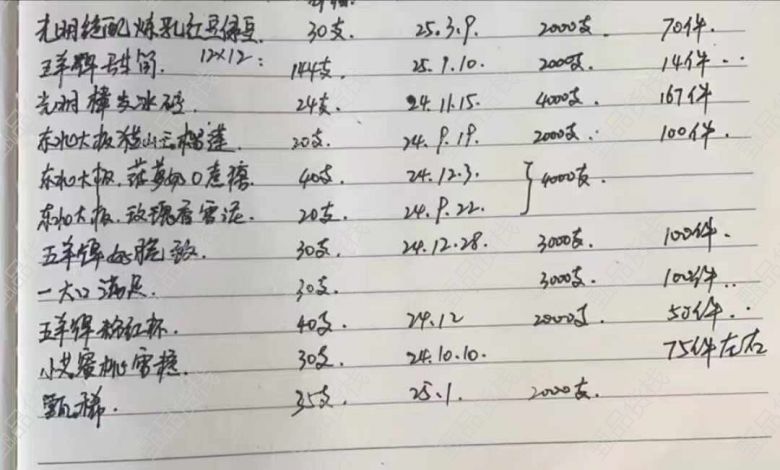 光明绝配炼乳红豆绿豆 30支. 25.3.9. 2000支. 70件.
五羊牌 筒. 12×12: 144支. 25.1.10. 2000支. 14件..
光明樟 冰砖. 24支. 24.11.15. 4000支. 167件
东北大板猫山王榴莲. 20支. 24.9.19. 2000支. 100件.
东北大板. 焦糖. 40支. 24.12.3. } 4000支.
东北大板. 玫瑰香雪泥. 20支. 24.9.22.
五羊牌 脆 . 30支. 24.12.28. 3000支. 100件.
一大口满足. 30支. 3000支. 100件..
五羊牌粉红杯. 40支. 24.12 2000支. 50件..
小 蜜桃雪糕. 30支. 24.10.10. 75件左右
甄稀. 35支. 25.1. 2000支.